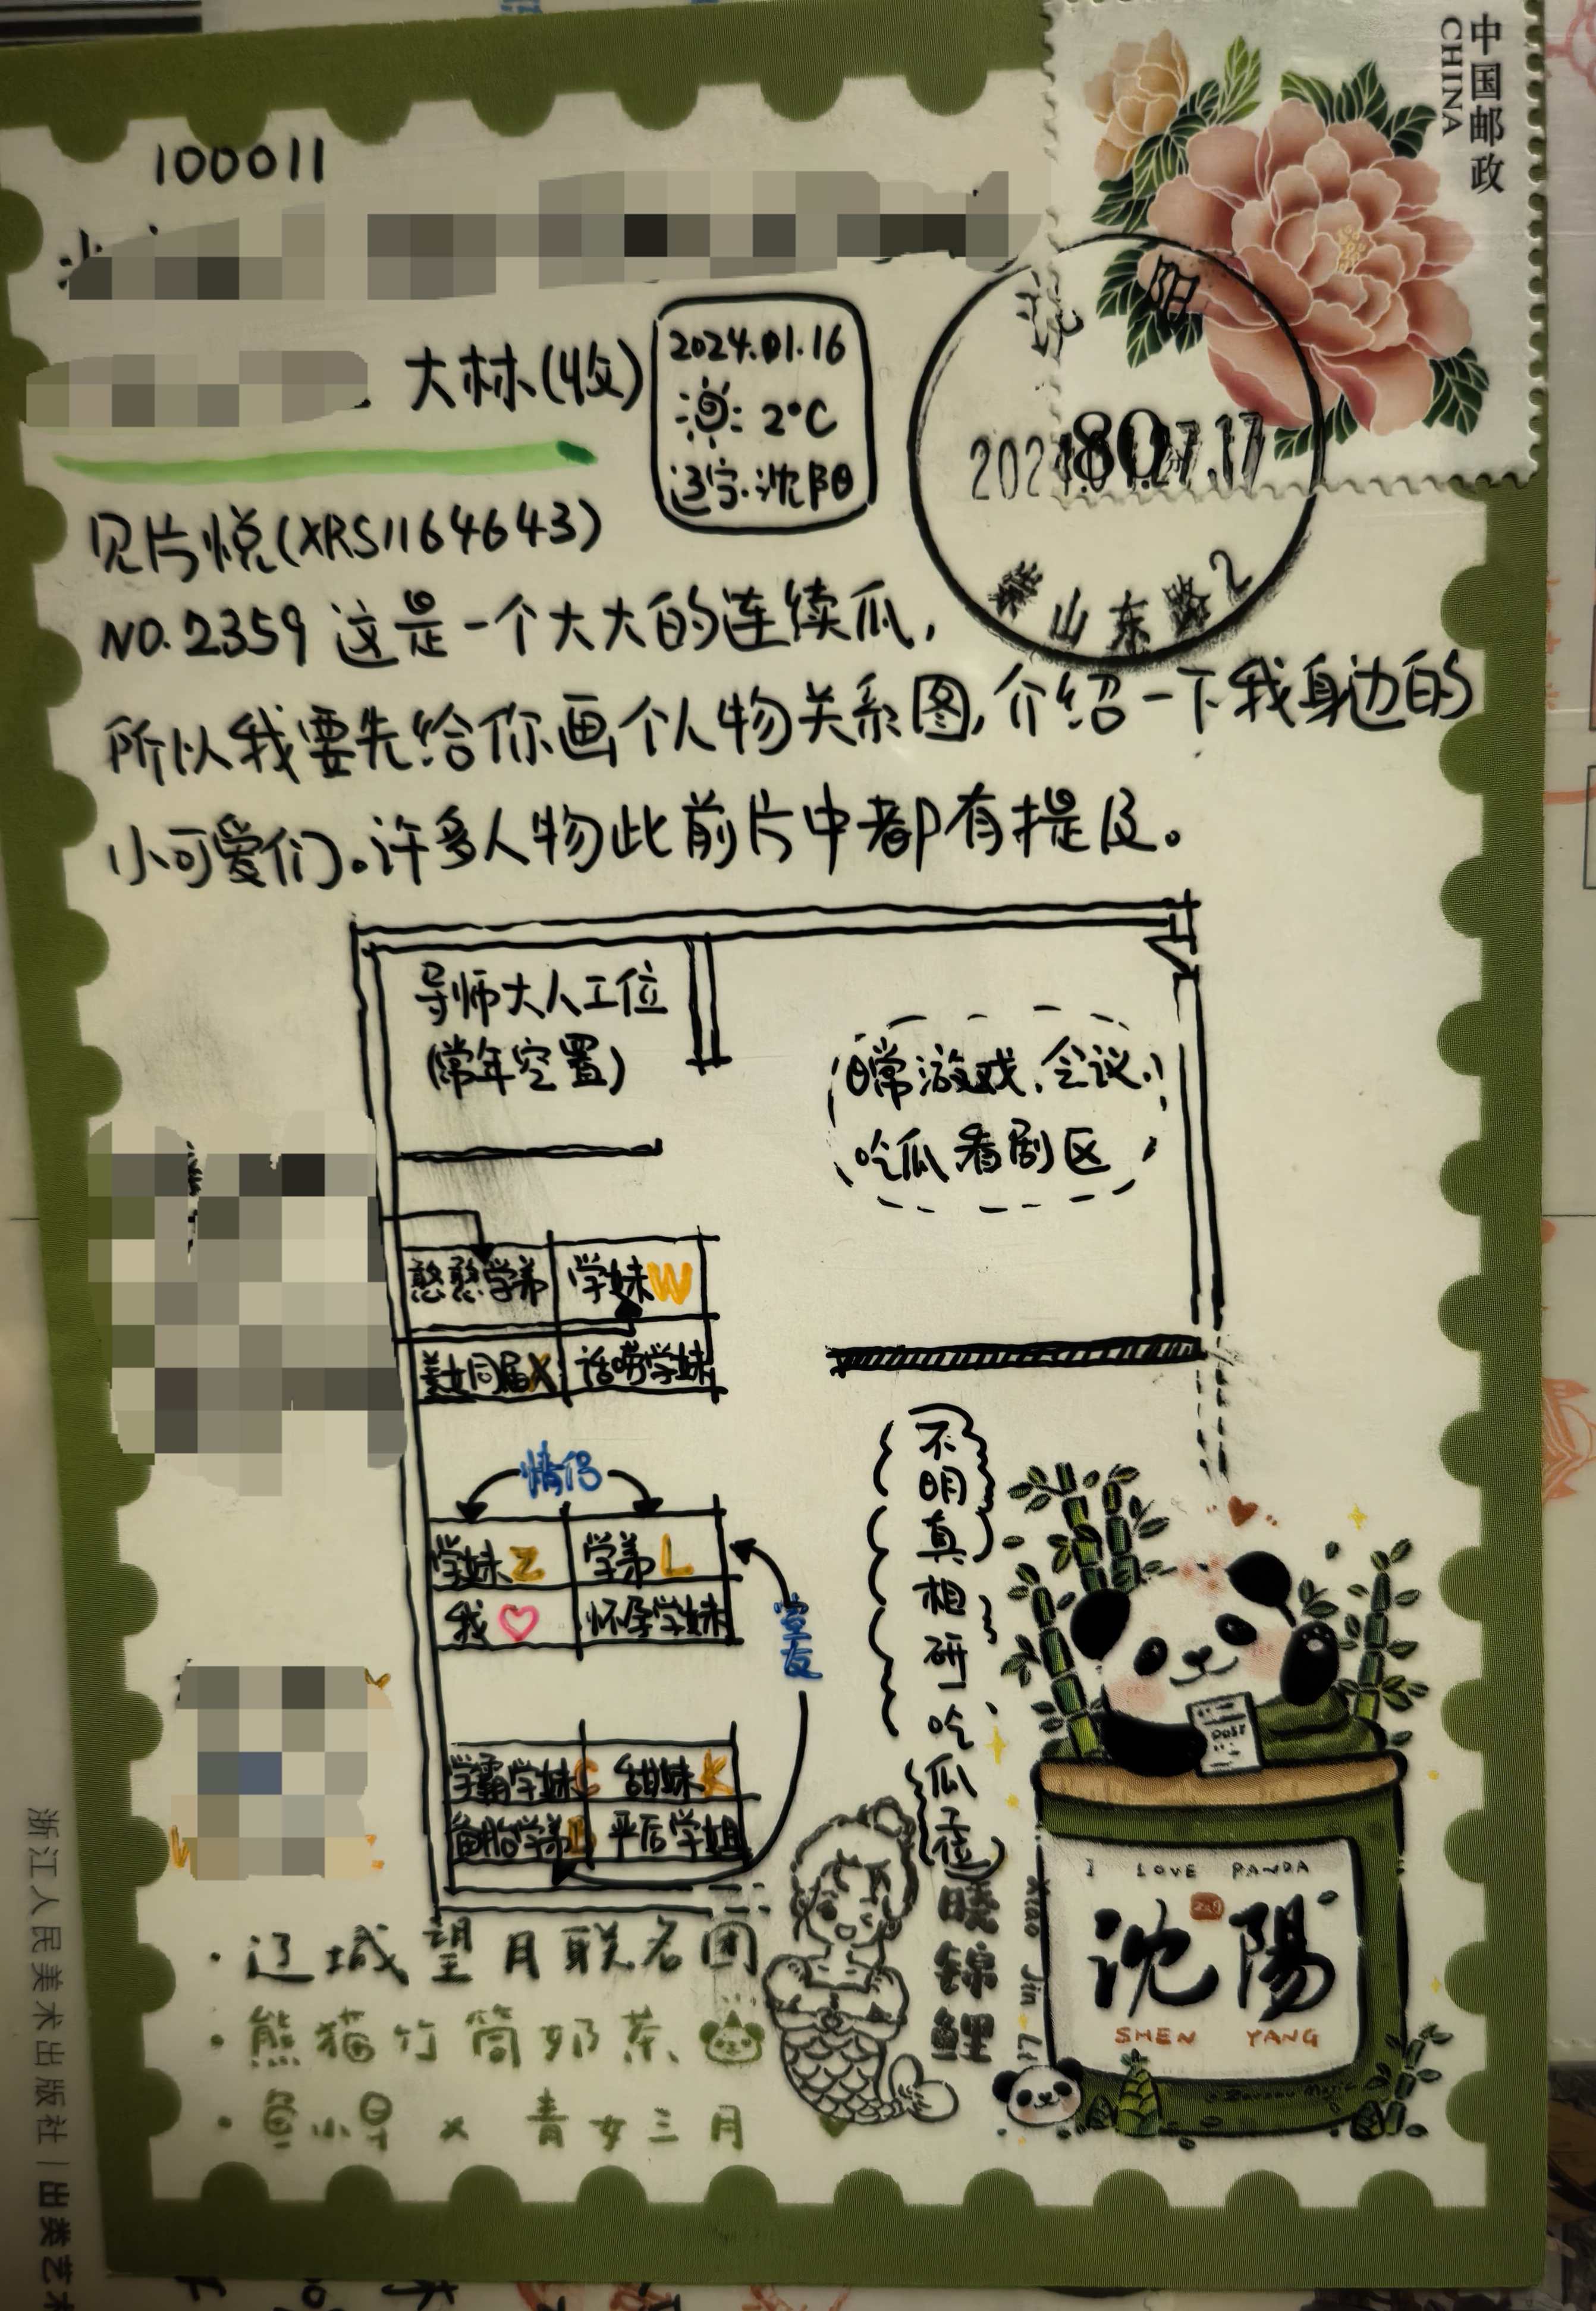 中国邮政
CHINA
100011
大林(收)
2024.01.16
2°C
辽宁·沈阳
沈阳
80
山东路2
见片悦(XRS1164643)
NO.2359 这是一个大大的连续瓜,
所以我要先给你画个人物关系图,介绍一下我身边的
小可爱们。许多人物此前片中都有提及。
导师大人工位
(常年空置)
日常游戏、会议、
吃瓜看剧区
憨憨学弟 学妹W
美女同届X 话唠学妹
情侣
学妹Z 学弟L
我 怀孕学妹
室友
学霸学妹C 甜妹K
备胎学弟B 平后学姐
不明真相研一吃瓜工位
·辽城望月联名团
·熊猫竹筒奶茶
·鱼小旱×青女三月
晓锦鲤
Xiao Jin Li
I LOVE PANDA
沈陽
SHEN YANG
POST
浙江人民美术出版社|出类艺术